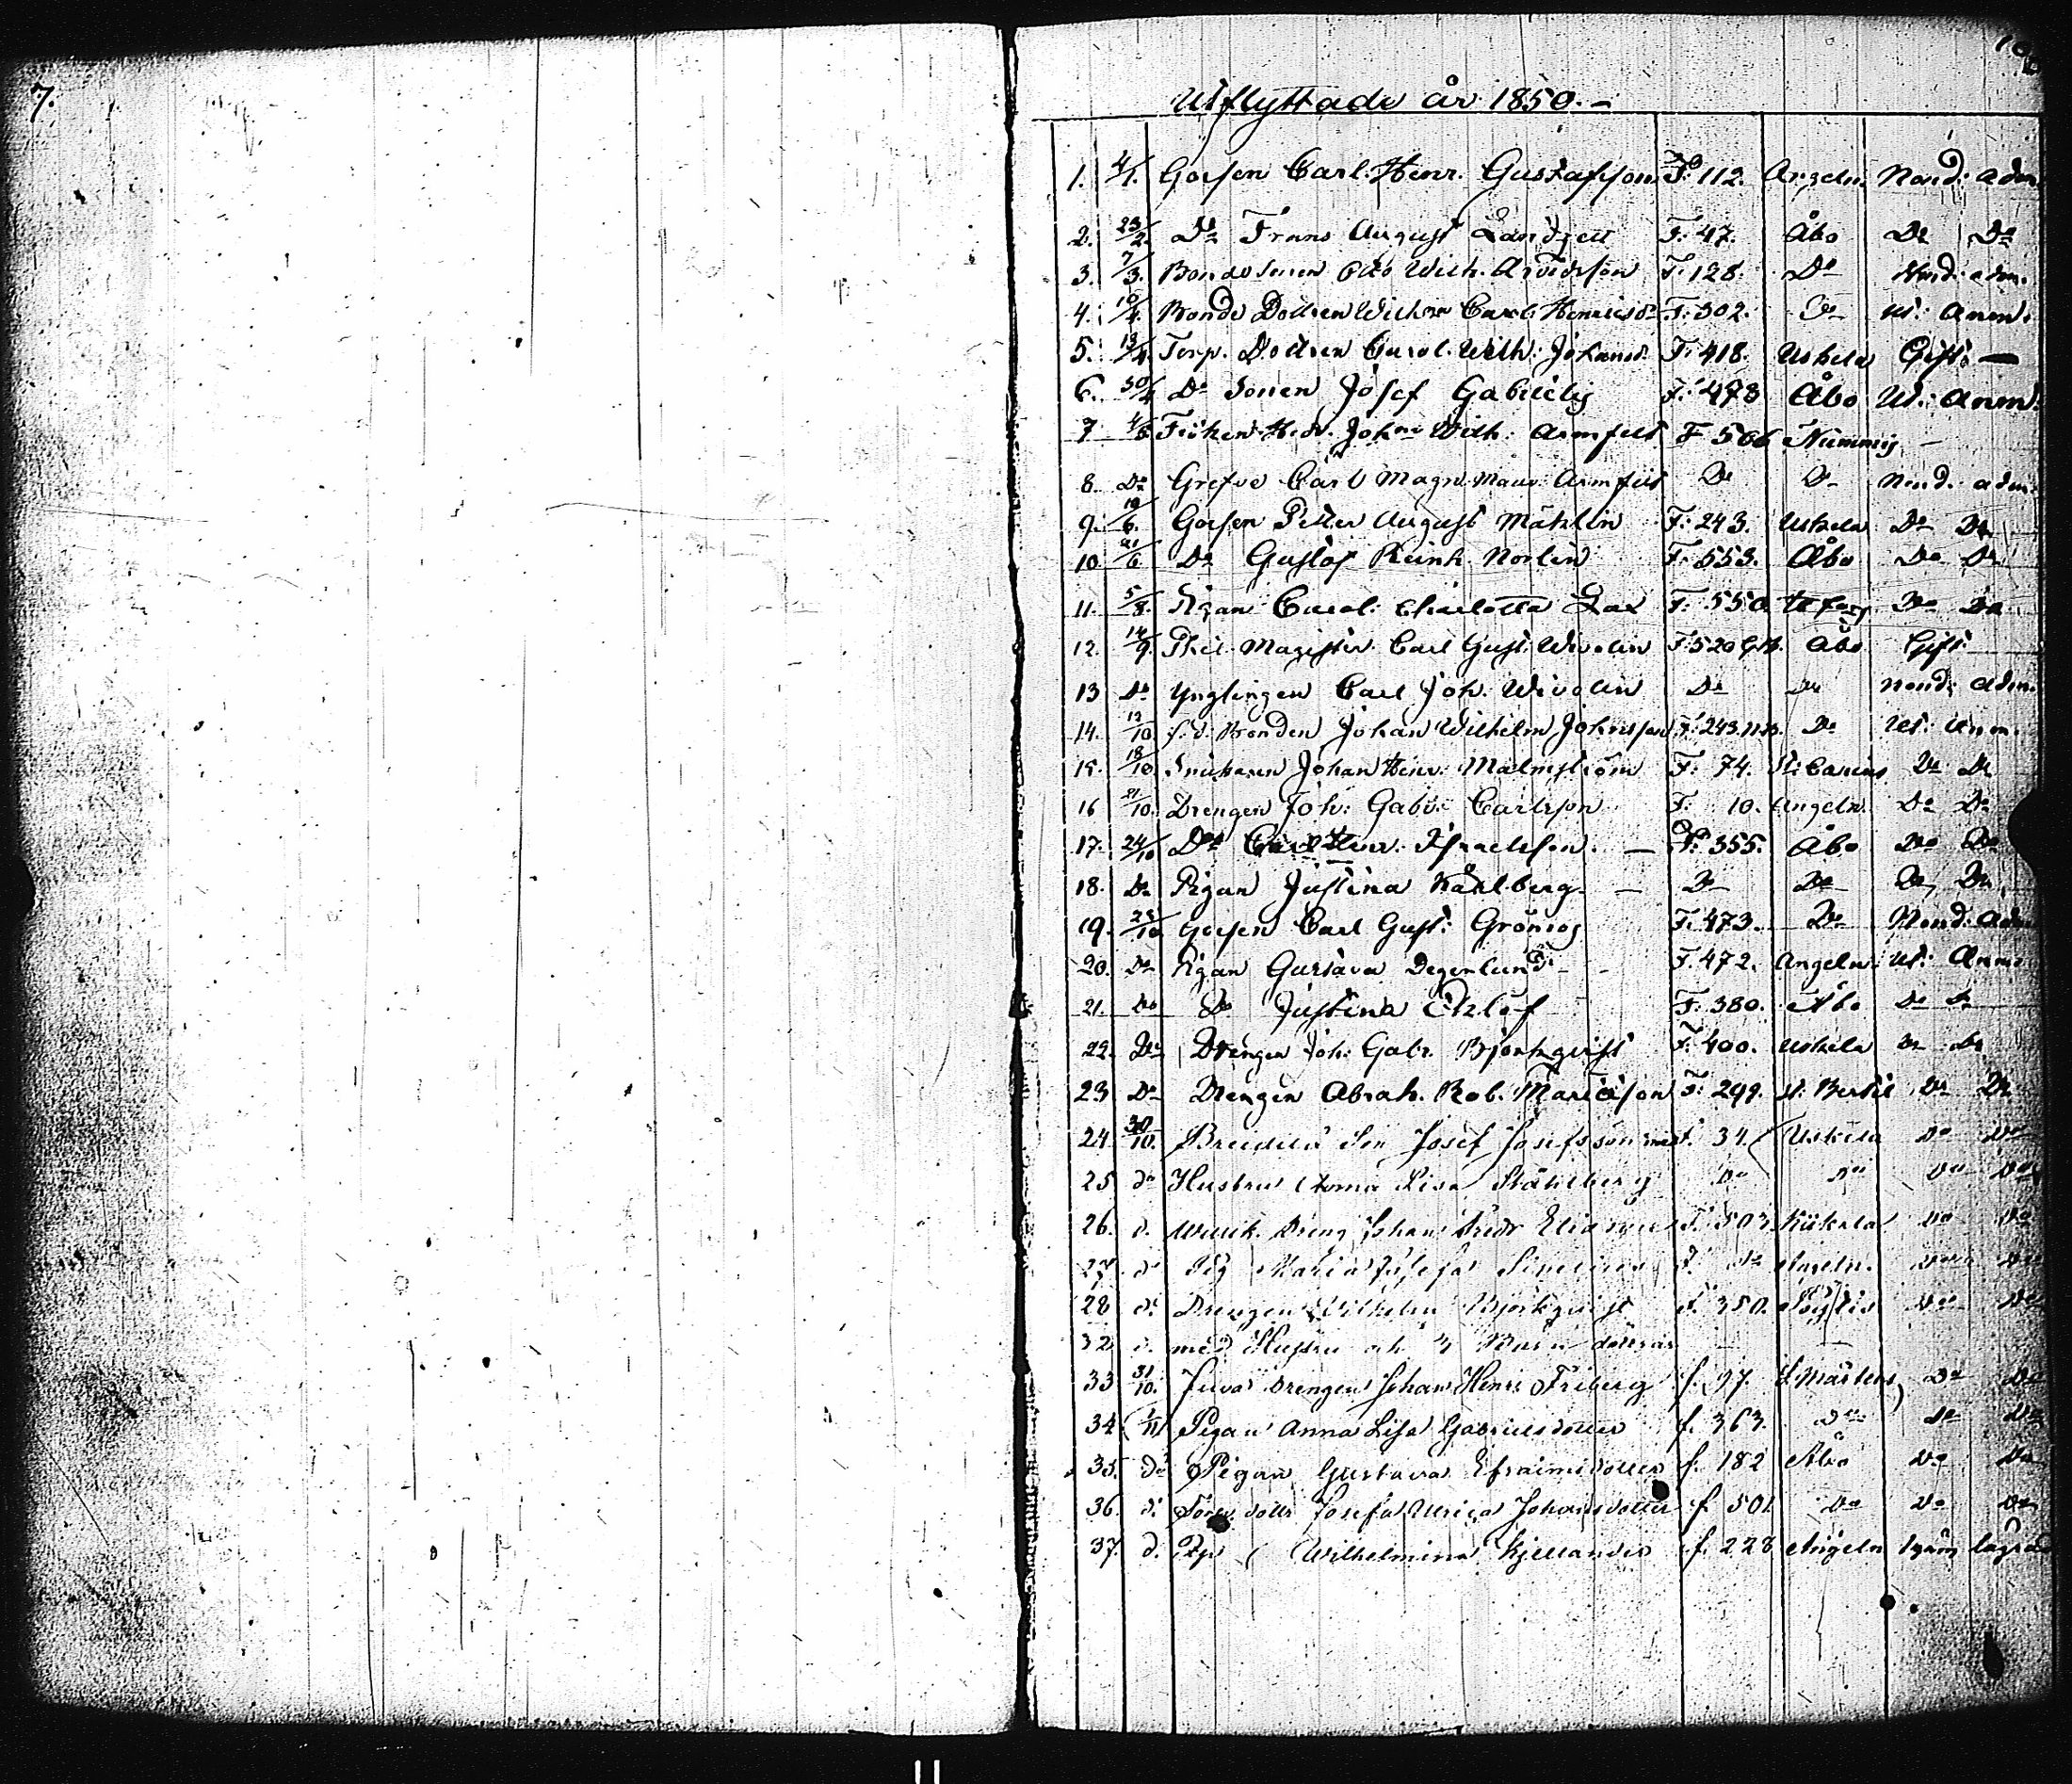 7.
Utflyttade år 1850. –
1. 4/1. Gossen Carl. Henr. Gustafsson F. 112. Angeln. Nond: adm.
2. 23/2. Do Frans August F. 47. Åbo Do Do
3. 7/3. Bondesonen Otto Wilh. Arvidsson F. 128. Do Nond: adm.
4. 10/4. Bonde Dottren Wilhna Carol. Henricsdr F. 302. Do ut: Anm.
5. 13/4. Torp. Dottren Carol. Wilh. Johansd. F. 418. Uskela Gift. –
6. 30/4 Do Sonen Josef Gabriels F. 478 Åbo Ut. Anm.
7 Fröken Hedv. Joh. Wilh. Armfelt F 566 Nummis –
8. Do Grefve Carl Magn. Maur. Armfelt Do Do Nond. adm.
9. 10/6. Gossen Petter August Mählin F. 243. Uskela Do Do
10. 21/6 Do Gustaf Reinh. Norlin F. 553. Åbo Do Do
11. 5/8. Pigan Carol. Charlotta Lax F. 550. Do Do
12. 14/9. Phil. Magister Carl Gust. Wivolin F. 520 Åbo Gift.
13 Do Ynglingen Carl Joh. Wivolin Do Do Nond. Adm.
14. 12/10. f. d. Bonden Johan Wilhelm Johansson F. 243. Do Ut. Anm.
15. 18/10. Snickaren Johan Henr. Malmström F. 74. Do Do
16 21/10. Drengen Joh. Gabr. Carlsson F. 10. Angeln. Do Do
17. 24/10 Do Carl Henr. Israelsson. – F. 355. Åbo Do Do
18. Do Pigan Justina Kårlberg – – Do Do Do Do
19. 25/10 Gossen Carl Gust. Grönros F. 473. Do Nond. Adm.
20. Do Pigan Gustava Degerlund – F. 472. Angeln. Ut. Anm.
21. Do Do Justina Ekelöf F. 380. Åbo Do Do
22. Do Drengen Joh. Gabr. Björkqvist F. 400. Uskela Do Do
23 Do Drengen Abrah. Rob. Mariæson F. 299. St. Bertil Do Do
24. 30/10. Son Josef Josefsson med f. 34 Uskela Do Do
25 do Hustru Anna Lisa Ståhlberg Do Do Do Do
26. d. Dreng Johan Fredr f. 503. Kiikala Do Do
27 do Pig Maria Josefa f. do Angeln. Do Do
28 d. Drengen Wilhelm Björkqvist f. 350. Do Do
32 d. med Hustru och 3 Barn döttrar – –
33 31/10. Drengen Johan Henr. Friberg f. 97. St Mårtens, Do Do
34 1/11 Pigan Anna Lisa Gabrielsdotter f. 363. Do Do Do
35. do Pigan Gustava Efraimsdotter f. 182 Åbo Do Do
36. d. Torp dottr Josefa Ulrica Johansdotter f. 501. Do Do Do
37. d. Wilhelmina Kjellander f. 228 Angeln